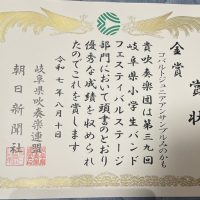 賞状
金賞
コバルトジュニアアンサンブルみのかも
貴吹奏楽団は第三九回
岐阜県小学生バンド
フェスティバルステージ
部門において頭書のとおり
優秀な成績を収められ
たのでこれを賞します
令和七年八月十日
岐阜県吹奏楽連盟
朝日新聞社